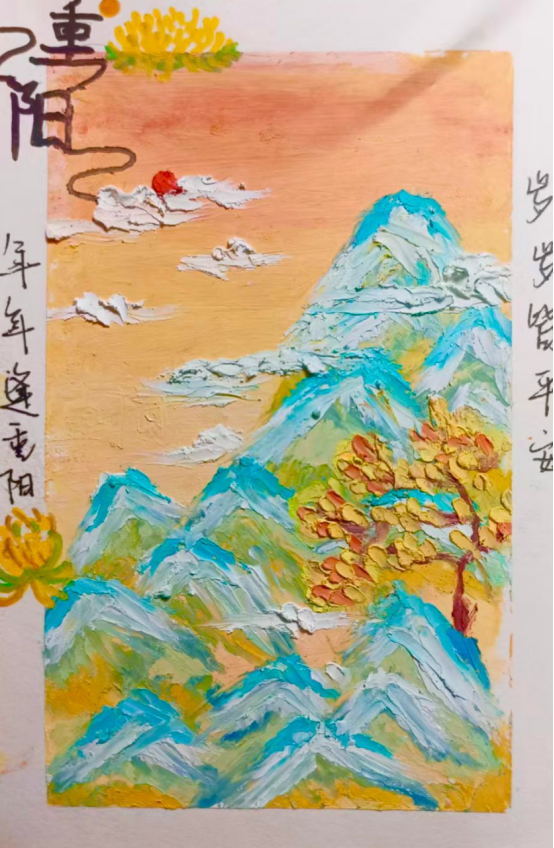 重阳
岁岁皆平安
年年逢重阳